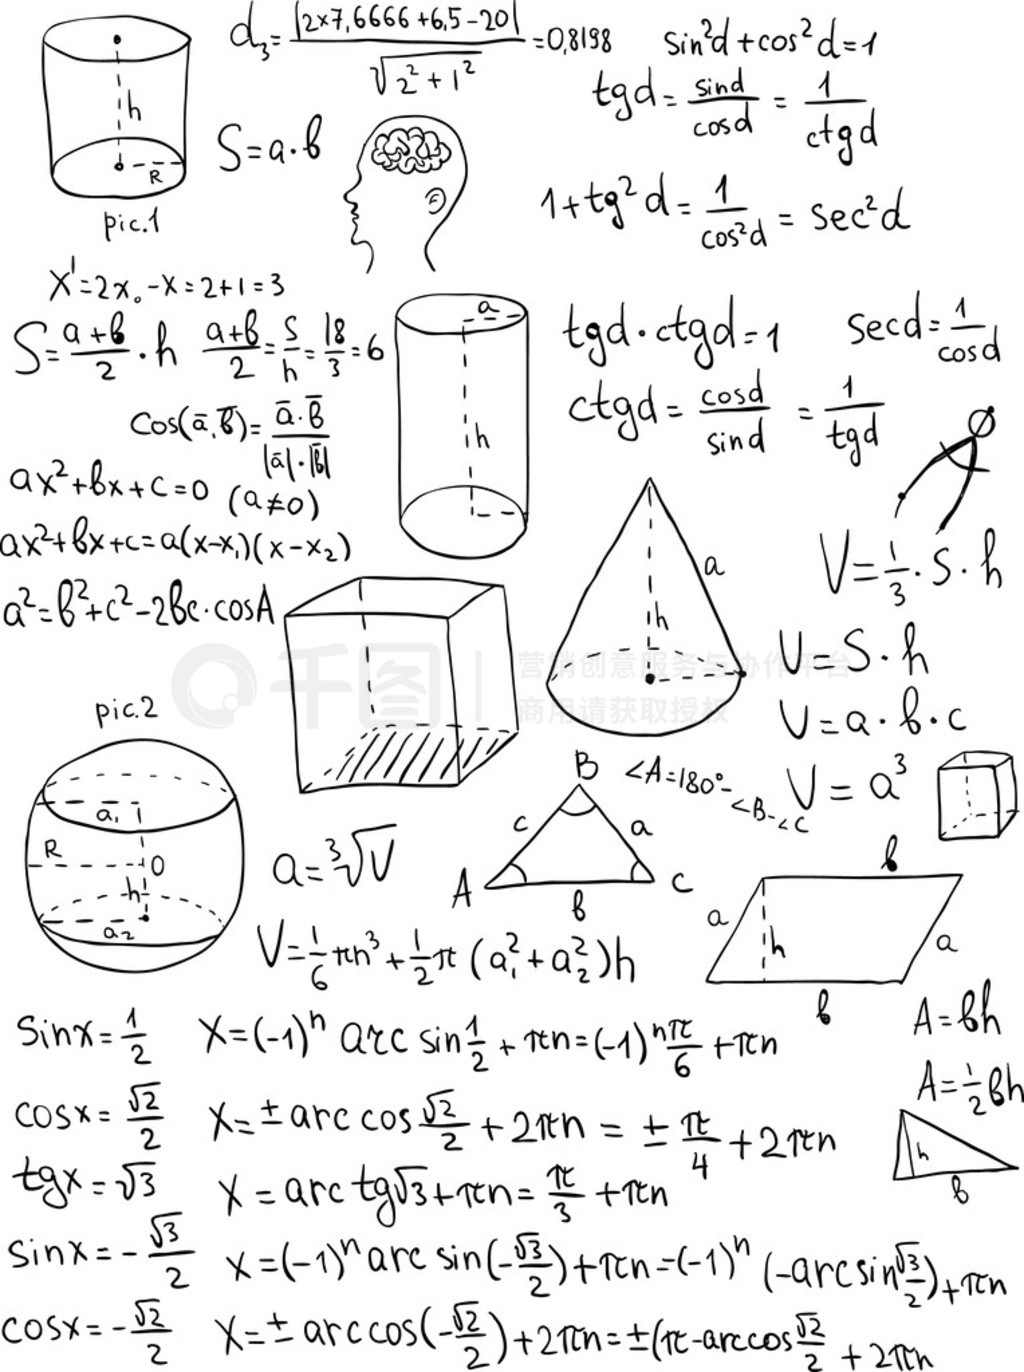 d₃ = |2×7,6666+6,5-20| / √(2²+1²) = 0,8198
sin²d + cos²d = 1
tgd = sind/cosd = 1/ctgd
h
R
pic.1
S = a·b
1 + tg²d = 1/cos²d = sec²d
x' = 2x₀ - x = 2+1 = 3
S = (a+b)/2 · h
(a+b)/2 = S/h = 18/3 = 6
a
h
tgd · ctgd = 1
secd = 1/cosd
cos(ā,b̄) = ā·b̄ / |ā|·|b̄|
ctgd = cosd/sind = 1/tgd
ax²+bx+c=0 (a≠0)
ax²+bx+c=a(x-x₁)(x-x₂)
a²=b²+c²-2bc·cosA
a
h
V = 1/3 · S · h
V = S · h
千图
营销创意服务与协作平台
商用请获取授权
V = a · b · c
pic.2
V = a³
a₁
R
O
h
a₂
a = ³√V
B
∠A=180°-∠B-∠C
c
a
A
C
b
b
a
h
a
b
V = 1/6 πh³ + 1/2 π (a₁² + a₂²)h
A = bh
sinx = 1/2
x = (-1)ⁿ arc sin 1/2 + πn = (-1)ⁿ π/6 + πn
A = 1/2 bh
cosx = √2/2
x = ± arc cos √2/2 + 2πn = ± π/4 + 2πn
h
b
tgx = √3
x = arc tg√3 + πn = π/3 + πn
sinx = -√3/2
x = (-1)ⁿ arc sin(-√3/2) + πn = (-1)ⁿ (-arcsin √3/2) + πn
cosx = -√2/2
x = ± arccos(-√2/2) + 2πn = ±(π-arccos √2/2 + 2πn